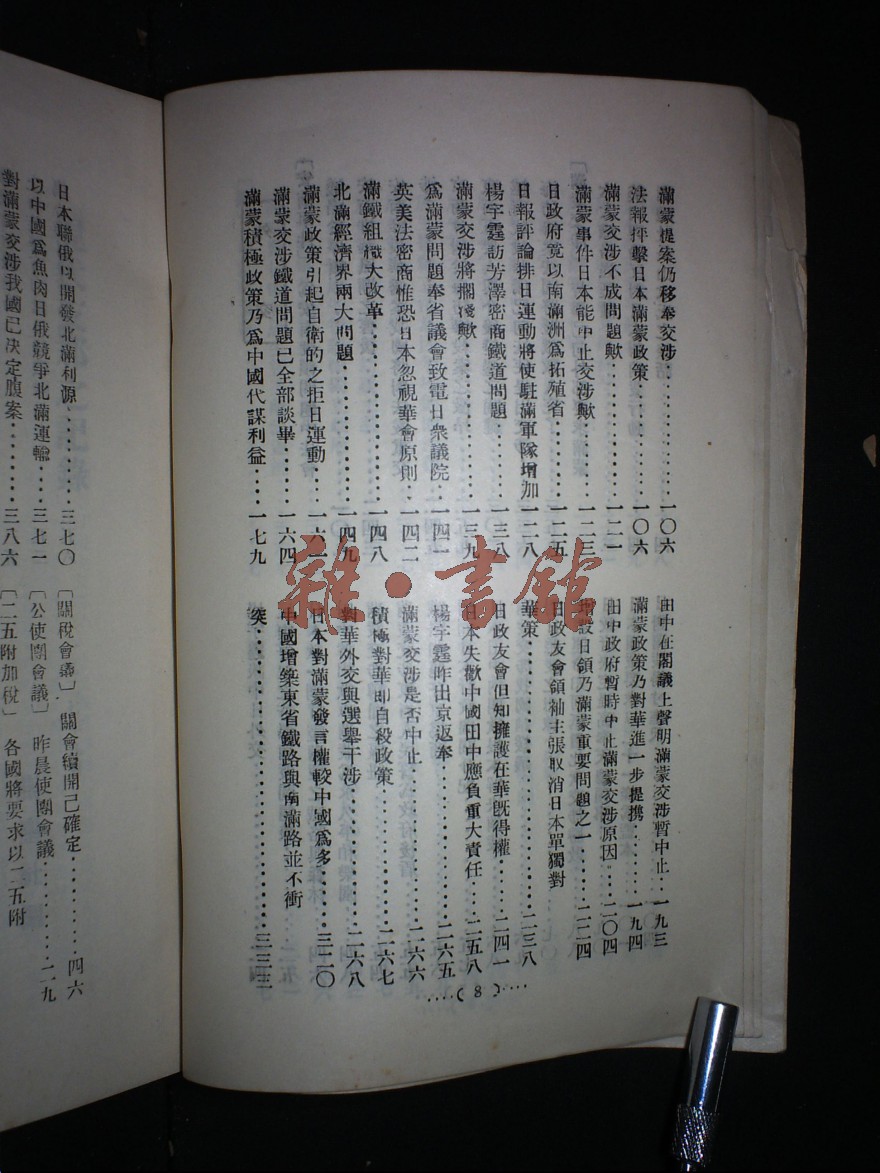 滿蒙提案仍移奉交涉············一〇六
法報抨擊日本滿蒙政策············一〇六
滿蒙交涉不成問題歟············一二一
滿蒙事件日本能中止交涉歟············一二三
日政府竟以南滿洲爲拓殖省············一二五
日報評論排日運動將使駐滿軍隊增加一二八
楊宇霆訪芳澤密商鐵道問題············一三八
滿蒙交涉將擱淺歟············一三九
爲滿蒙問題奉省議會致電日衆議院····一四一
英美法密商惟恐日本忽視華會原則····一四二
滿鐵組織大改革············一四八
北滿經濟界兩大問題············一四九
滿蒙政策引起自衛的之拒日運動····一六一
滿蒙交涉鐵道問題已全部談畢····一六四
滿蒙積極政策乃爲中國代謀利益····一七九
田中在閣議上聲明滿蒙交涉暫中止···一九三
滿蒙政策乃對華進一步提携········一九四
田中政府暫時中止滿蒙交涉原因····二〇四
增設日領乃滿蒙重要問題之一······二二四
日政友會領袖主張取消日本單獨對
華策············二三八
日政友會但知擁護在華既得權····二四一
日本失歡中國田中應負重大責任····二五八
楊宇霆昨出京返奉············二六五
滿蒙交涉是否中止············二六六
積極對華即自殺政策············二六七
對華外交與選舉干涉············二六八
日本對滿蒙發言權較中國爲多····三二〇
中國增築東省鐵路與南滿路並不衝
突············三三三
····(8)····
日本聯俄以開發北滿利源········三七〇
以中國爲魚肉日俄競爭北滿運輸····三七一
對滿蒙交涉我國已決定腹案········三八六
〔關稅會議〕關會續開已確定············四六
〔公使團會議〕昨晨使團會議············二九
〔二五附加稅〕各國將要求以二五附
雜·書館